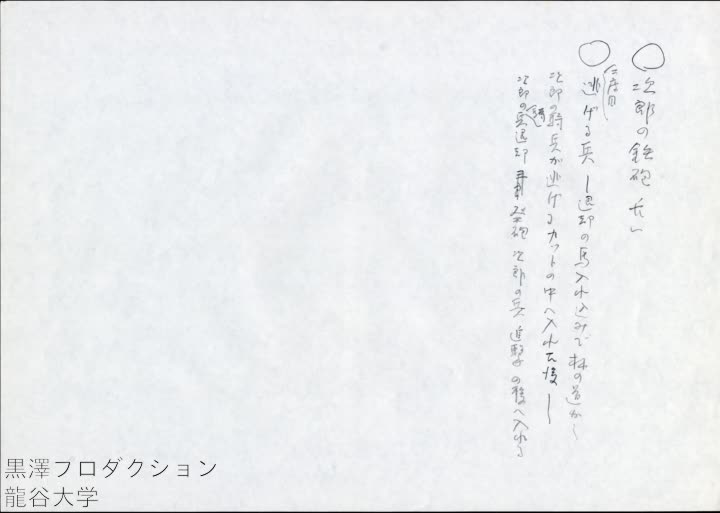 ○次郎の鉄砲 長い
二度目
○逃げる兵 ー 退却の馬入れ込みで林の道から
次郎の騎兵が逃げるカットの中へ入れた後ー
次郎の兵退却 発砲 次郎の兵 追撃 の後へ入れる
黒澤プロダクション
龍谷大学